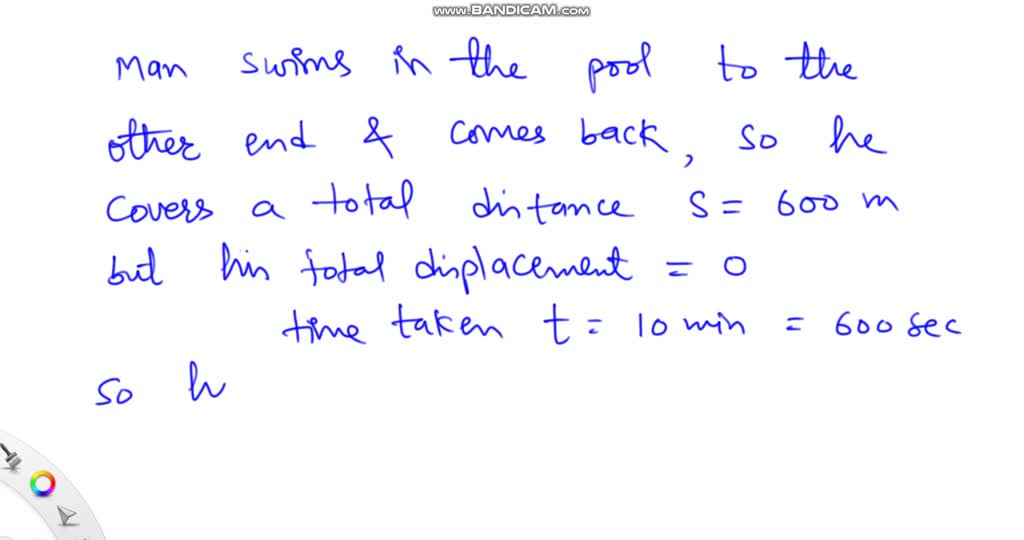 www.BANDICAM.com
Man swims in the pool to the
other end & comes back, so he
covers a total distance S = 600 m
but his total displacement = 0
time taken t = 10 min = 600 sec
so h